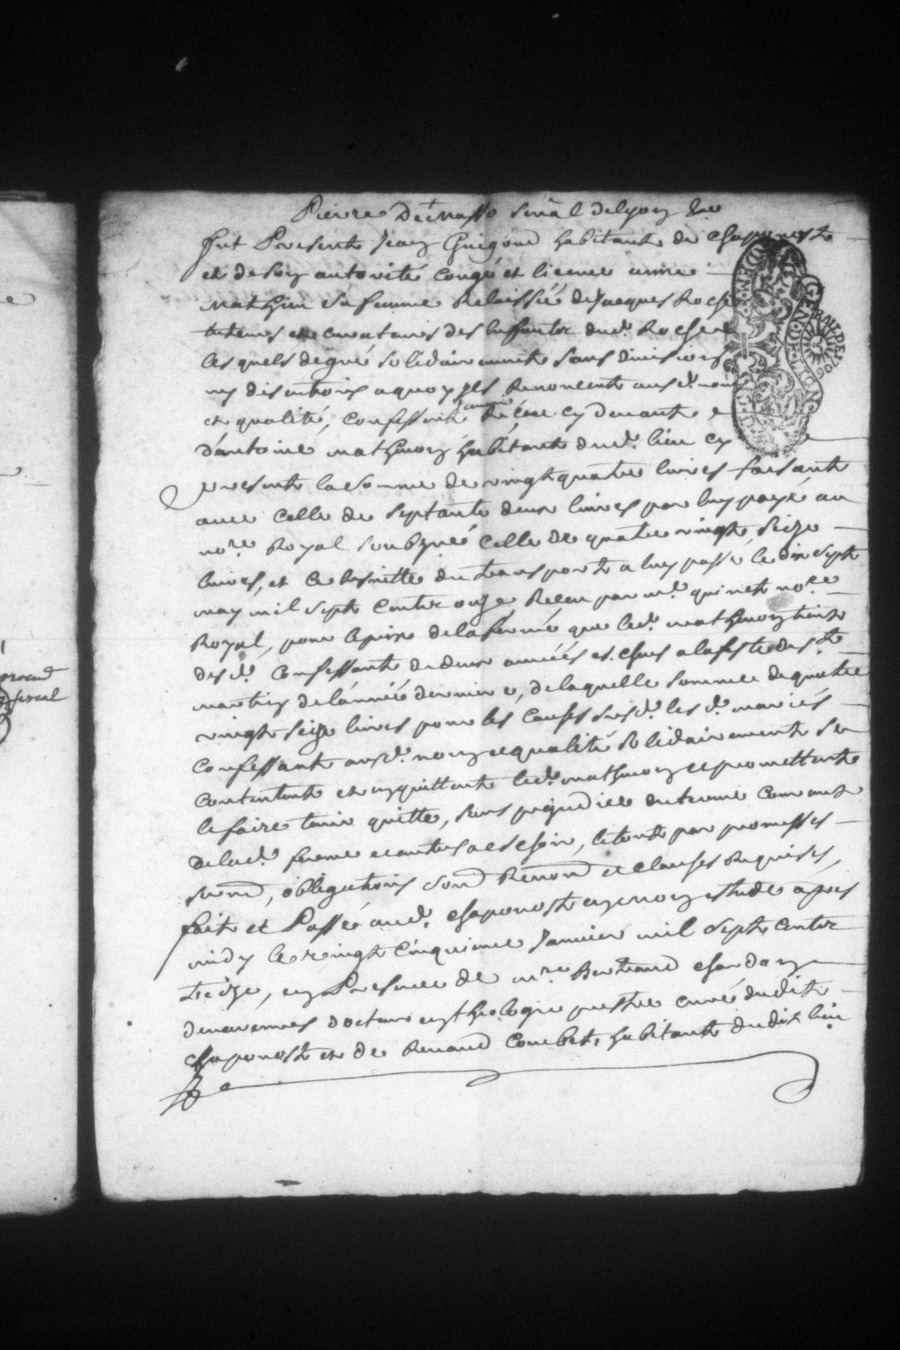 Pierre De Masso senal de lyon &ce
fut Presents Jean Guigond habitant de chaponost
et de son autorité congé et licence anne
Mathieu sa femme Relaissée de Jacques Roche
tuteurs et curateurs des Enfants dud. Rochere
lesquels de gré solidairement sans division
ny discution a quoy ils Renoncent ausd. nom
et qualité, confessent avoir Receu cy devant
d'antoine mathmon habitant dud. lieu cy
present la somme de vingt quatre livres faisant
avec celle de septante deux livres par luy payé au
nore Royal soubsigné celle de quatre vingt seize
livres, et ce ensuitte du transport a luy passé le dix sept
may mil sept centz onze Receu par me. quinet nore
Royal, pour le prix de la ferme que led. mathmon tient
desd. confessant de deux années escheus a la feste de St
martin de l'année derniere, de laquelle somme de quatre
vingt seize livres pour les causes susd. les d. mariés
confessant ausd. nom et qualité solidairement se
contentent et en quittent led. mathmon et promettent
le faire tenir quitte, sans prejudice du terme courant
de lad. ferme et autres a escheoir, le tout par promesses
serend, obligations soud Renond et clauses Requises,
fait et Passé aud. chaponost en mon estude apres
midy le vingt cinquieme Janvier mil sept centz
treize, en Presence de mre Bertrand chanday
demarennes docteur en theologie prestre curé dudit
chaponost et de Renaud Combet, habitant dudit lieu
GEN. DE LION